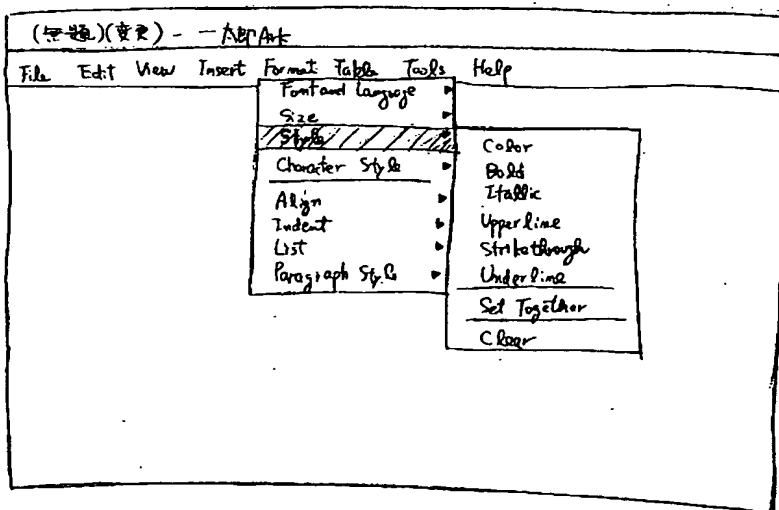 (無題)(変更) - 一太郎Ark
File Edit View Insert Format Table Tools Help
Font and Language
Size
Style
Character Style
Align
Indent
List
Paragraph Style
Color
Bold
Itallic
Upperline
Strikethrough
Underline
Set Together
Clear